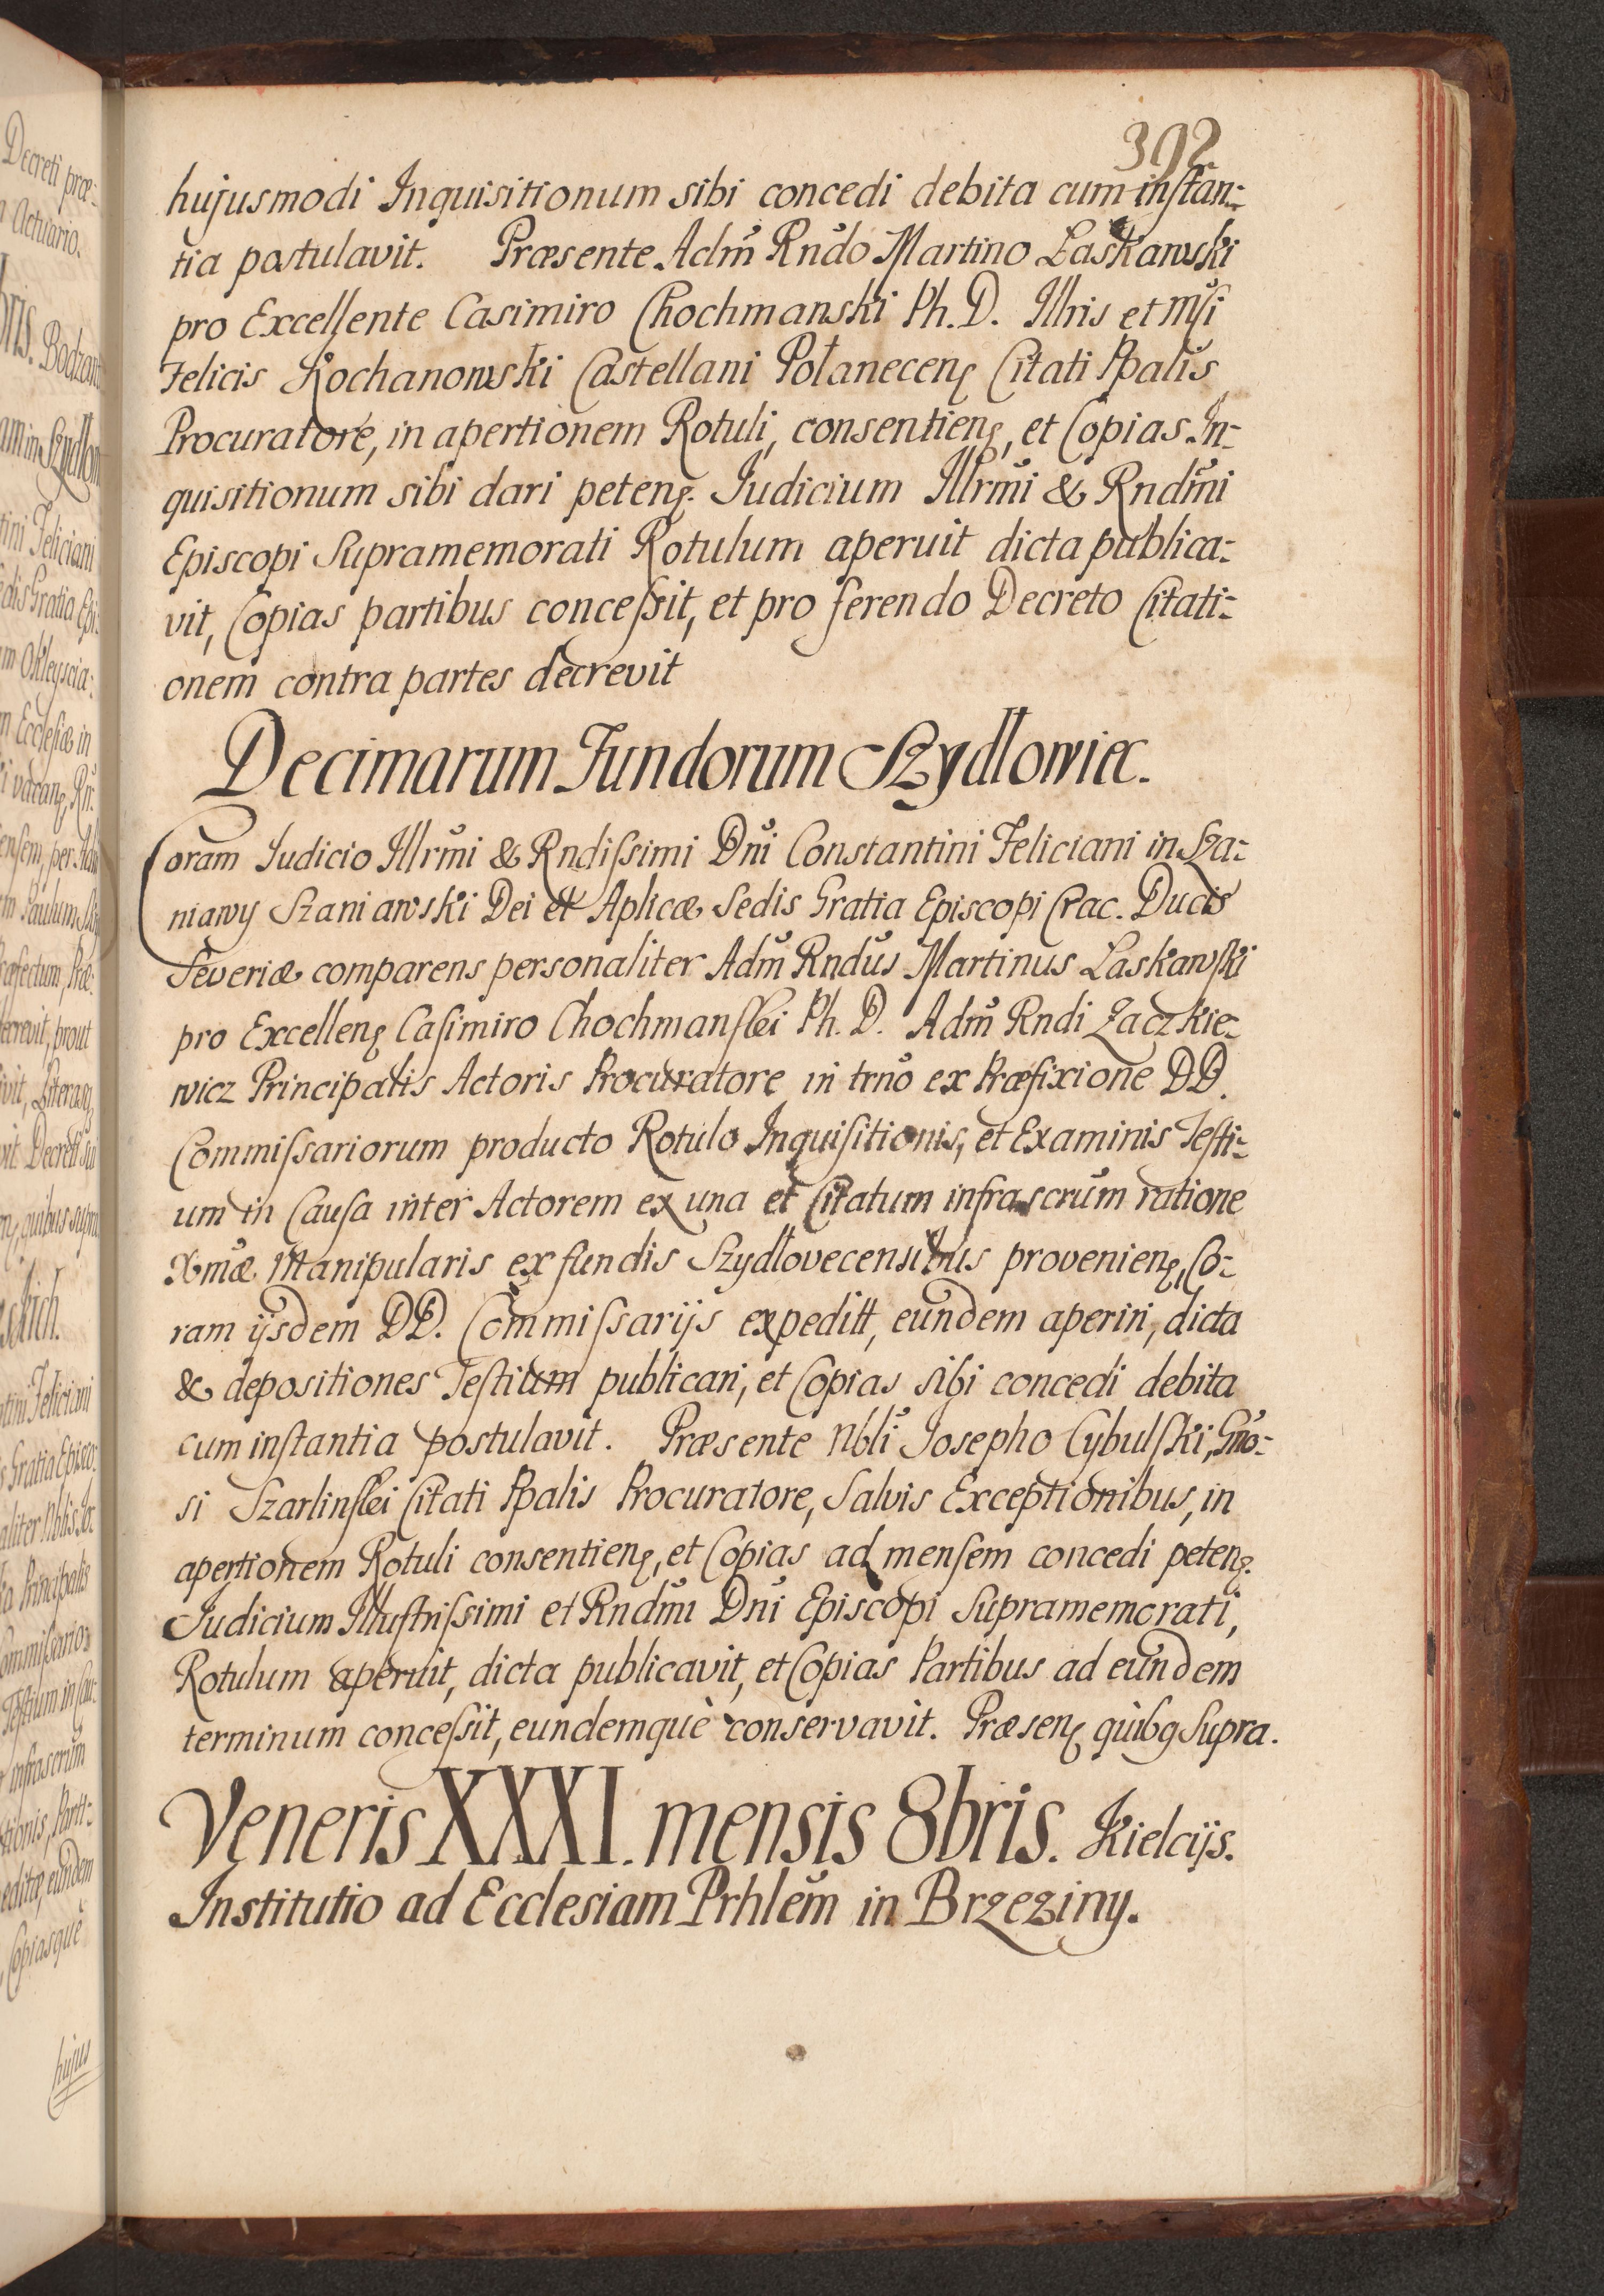 392
hujusmodi Inquisitionum sibi concedi debita cum instan:
tia postulavit. Præsente Adm̃ Rndo Martino Łaskawski
pro Excellente Casimiro Chochmanski Ph. D. Illris et Mſi
Felicis Kochanowski Castellani Połanecenṣ Citati Ppalis
Procuratore, in apertionem Rotuli, consentienṣ, et Copias In-
quisitionum sibi dari petenṣ. Iudicium Illrmi & Rndmi
Episcopi Supramemorati Rotulum aperuit dicta publica:
vit, Copias partibus conceſsit, et pro ferendo Decreto Citati:
onem contra partes decrevit
Decimarum Fundorum Szydłowiec.
Coram Iudicio Illrmi & Rndiſsimi Dni Constantini Feliciani in Sza:
niawy Szaniawski Dei et Aplicæ Sedis Gratia Episcopi Crac. Ducis
Severiæ comparens personaliter Adm̃ Rndus Martinus Laskawſki
pro Excellenṣ Caſimiro Chochmanſki Ph. D. Adm̃ Rndi Łaczkie-
wicz Principalis Actoris Procuratore in trno ex Præfixione DD.
Commiſsariorum producto Rotulo Inquiſitionis, et Examinis Teſti-
um in Cauſa inter Actorem ex una et Citatum infrascrum ratione
Xmæ Manipularis ex fundis Szydłovecensibus provenienṣ, Co-
ram ijsdem DD. Commiſsarijs expeditt, eundem aperiri, dicta
& depositiones Teſtium publicari, et Copias sibi concedi debita
cum inſtantia postulavit. Præsente Nbli Josepho Cybulſki, Gno-
si Szarlinſki Citati Ppalis Procuratore, Salvis Exceptionibus, in
apertionem Rotuli consentienṣ, et Copias ad menſem concedi petenṣ.
Iudicium Illuſtriſsimi et Rndmi Dni Episcopi Supramemorati,
Rotulum aperuit, dicta publicavit, et Copias Partibus ad eundem
terminum conceſsit, eundemquè conservavit. Præsenṣ quibg Supra.
Veneris XXXI. mensis 8bris. Kielcijs.
Institutio ad Ecclesiam Prhlem in Brzeziny.